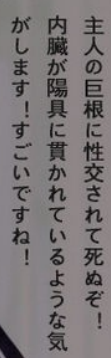 主人の巨根に性交されて死ぬぞ！
内臓が陽具に貫かれているような気
がします！すごいですね！